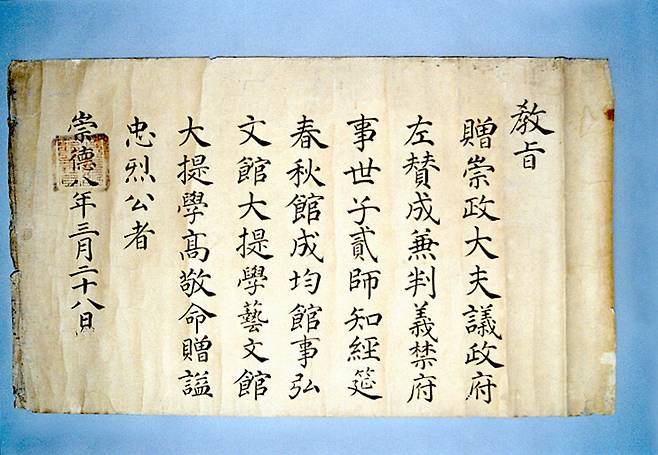 敎旨
贈崇政大夫議政府
左賛成兼判義禁府
事世子貳師知經筵
春秋館成均館事弘
文館大提學藝文館
大提學髙敬命贈謚
忠烈公者
崇德八年三月二十八日